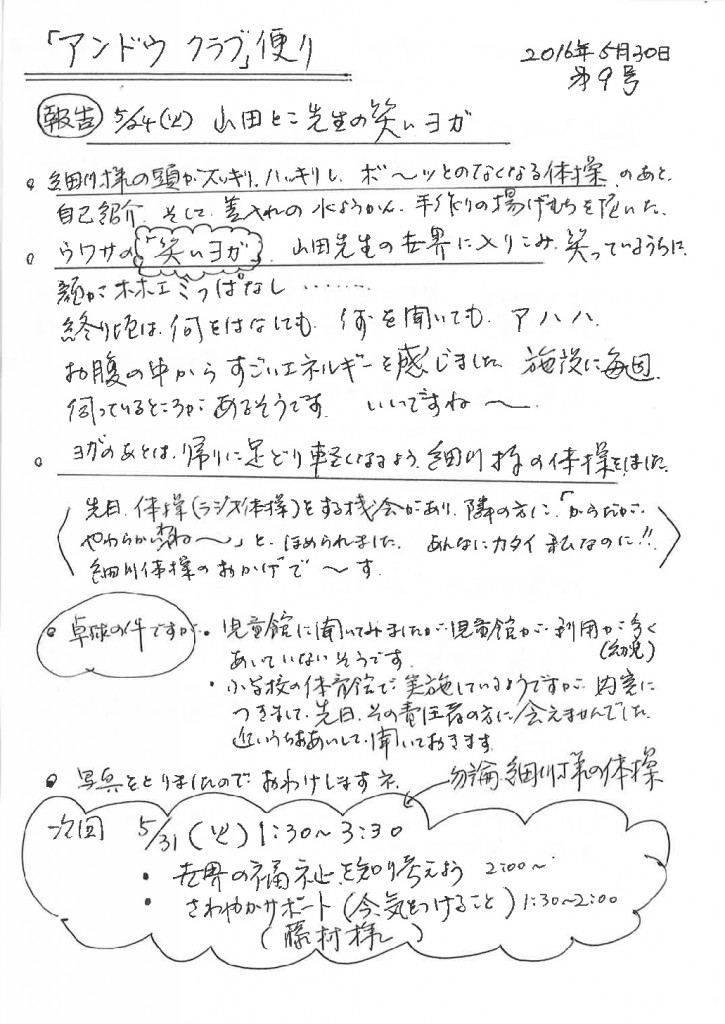 「アンドウ クラブ」便り
2016年5月30日
第9号
報告 5/24(火) 山田とこ先生の笑いヨガ
細川様の頭がスッキリ、ハッキリし、ボ〜ッとのなくなる体操、のあと、
自己紹介、そして、差入れの水ようかん、手作りの揚げもちを頂いた。
ウワサの「笑いヨガ」、山田先生の世界に入りこみ、笑っているうちに、
顔がホホエミっぱなし ‥‥‥‥
終り頃は、何をはなしても、何を聞いても、アハハ、
お腹の中からすごいエネルギーを感じました。施設に毎週、
伺っているところがあるそうです。 いいですね〜。
ヨガのあとは、帰りに足どり軽くなるよう、細川様の体操をしました。
先日、体操(ラジオ体操)をする機会があり、隣の方に、「からだが、
やわらかいね〜」と、ほめられました。 あんなにカタイ私なのに!!
細川体操のおかげで〜す。
卓球の件ですが、・児童館に聞いてみましたが、児童館が、利用が多く
(幼児)
あいていないそうです。
・小学校の体育館で実施しているようですが、内容に
つきまして、先日、その責任者の方に会えませんでした。
近いうちおあいして、聞いておきます。
写真をとりましたので、おわけしますネ。
勿論、細川様の体操
次回 5/31(火) 1:30〜3:30
・世界の福祉を知り考えよう 2:00〜
・さわやかサポート(今、気をつけること) 1:30〜2:00
(藤村様)